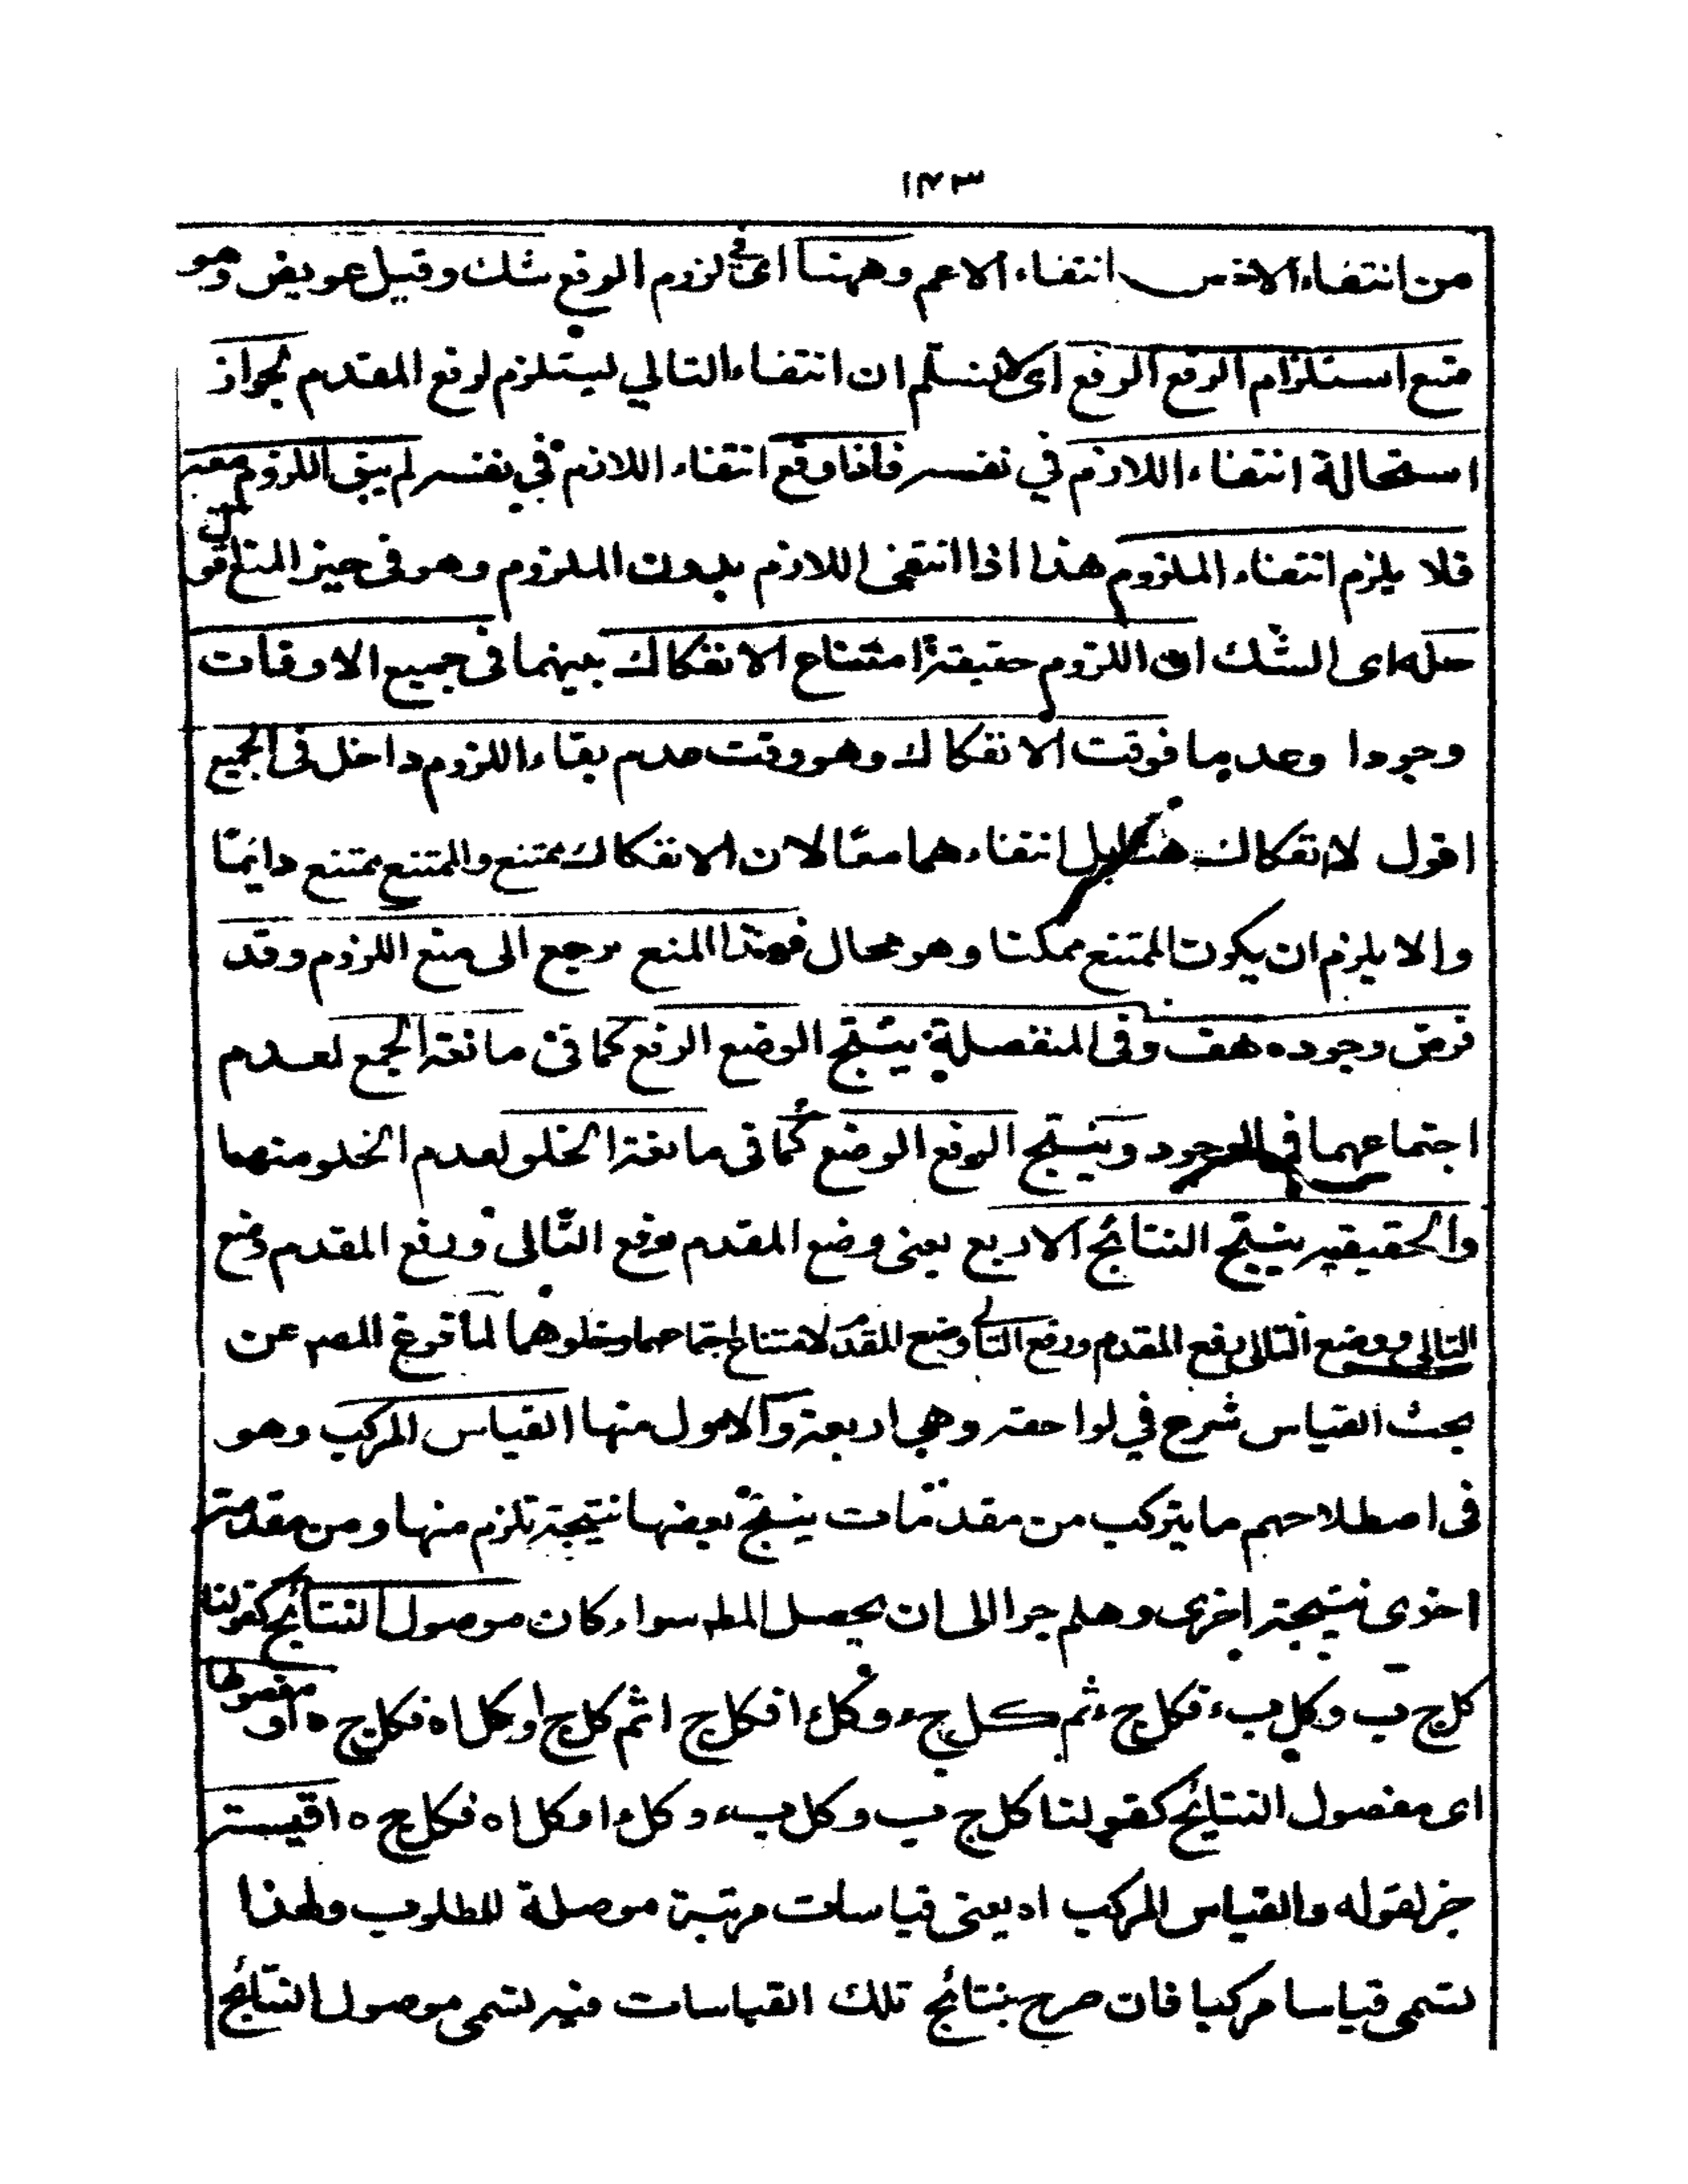 ١٤٣
من انتفاء الاخص انتفاء الاعم وههنا اى في لزوم الرفع شك وقيل عويض وهو
منع استلزام الرفع الرفع اى لا نسلم ان انتفاء التالي ليستلزم لرفع المقدم لجواز
استحالة انتفاء اللازم في نفسه فاذا وقع انتفاء اللازم في نفسه لم يبق اللزوم معه
فلا يلزم انتفاء الملزوم هذا اذا انتفى اللازم بدون الملزوم وهو في حيز المنع قول
حله اى الشك ان اللزوم حقيقة امتناع الانفكاك بينهما فى جميع الاوقات
وجودا وعدما فوقت الانفكاك وهو وقت عدم بقاء اللزوم داخل فى الجميع
اقول لا انفكاك هنا بل انتفاءهما معًا لان الانفكاك ممتنع والممتنع ممتنع دائمًا
والا يلزم ان يكون الممتنع ممكنا وهو محال فهذا المنع يرجع الى منع اللزوم وقد
فرض وجوده هف وفى المنفصلة ينتج الوضع الرفع كما فى مانعة الجمع لعدم
اجتماعهما في الوجود وينتج الرفع الوضع كما فى مانعة الخلو لعدم الخلو منهما
والحقيقيه ينتج النتائج الاربع يعنى وضع المقدم فرفع التالى ورفع المقدم وضع
التالي ووضع التالى رفع المقدم ورفع التالى وضع المقدم لامتناع اجتماعهما وخلوهما لما فرغ المصه عن
بحث القياس شرع في لواحقه وهي اربعة والاول منها القياس المركب وهو
فى اصطلاحهم ما يتركب من مقدمات ينتج بعضها نتيجة تلزم منها ومن مقدمة
اخرى نتيجة اخرى وهلم جرا الى ان يحصل المطه سواء كان موصول النتائج كقولنا
كل ج ب وكل ب ء فكل ج ء ثم كل ج ء وكل ء ا فكل ج ا ثم كل ج ا وكل ا ه فكل ج ه او مفصولها
اى مفصول النتايج كقولنا كل ج ب وكل ب ء وكل ء ا وكل ا ه فكل ج ه اقيسة
خبر لقوله والقياس المركب اه يعنى قياسات مرتبة موصلة للمطلوب ولهذا
تسمى قياسا مركبا فان صرح بنتائج تلك القياسات فيه تسمى موصول النتائج